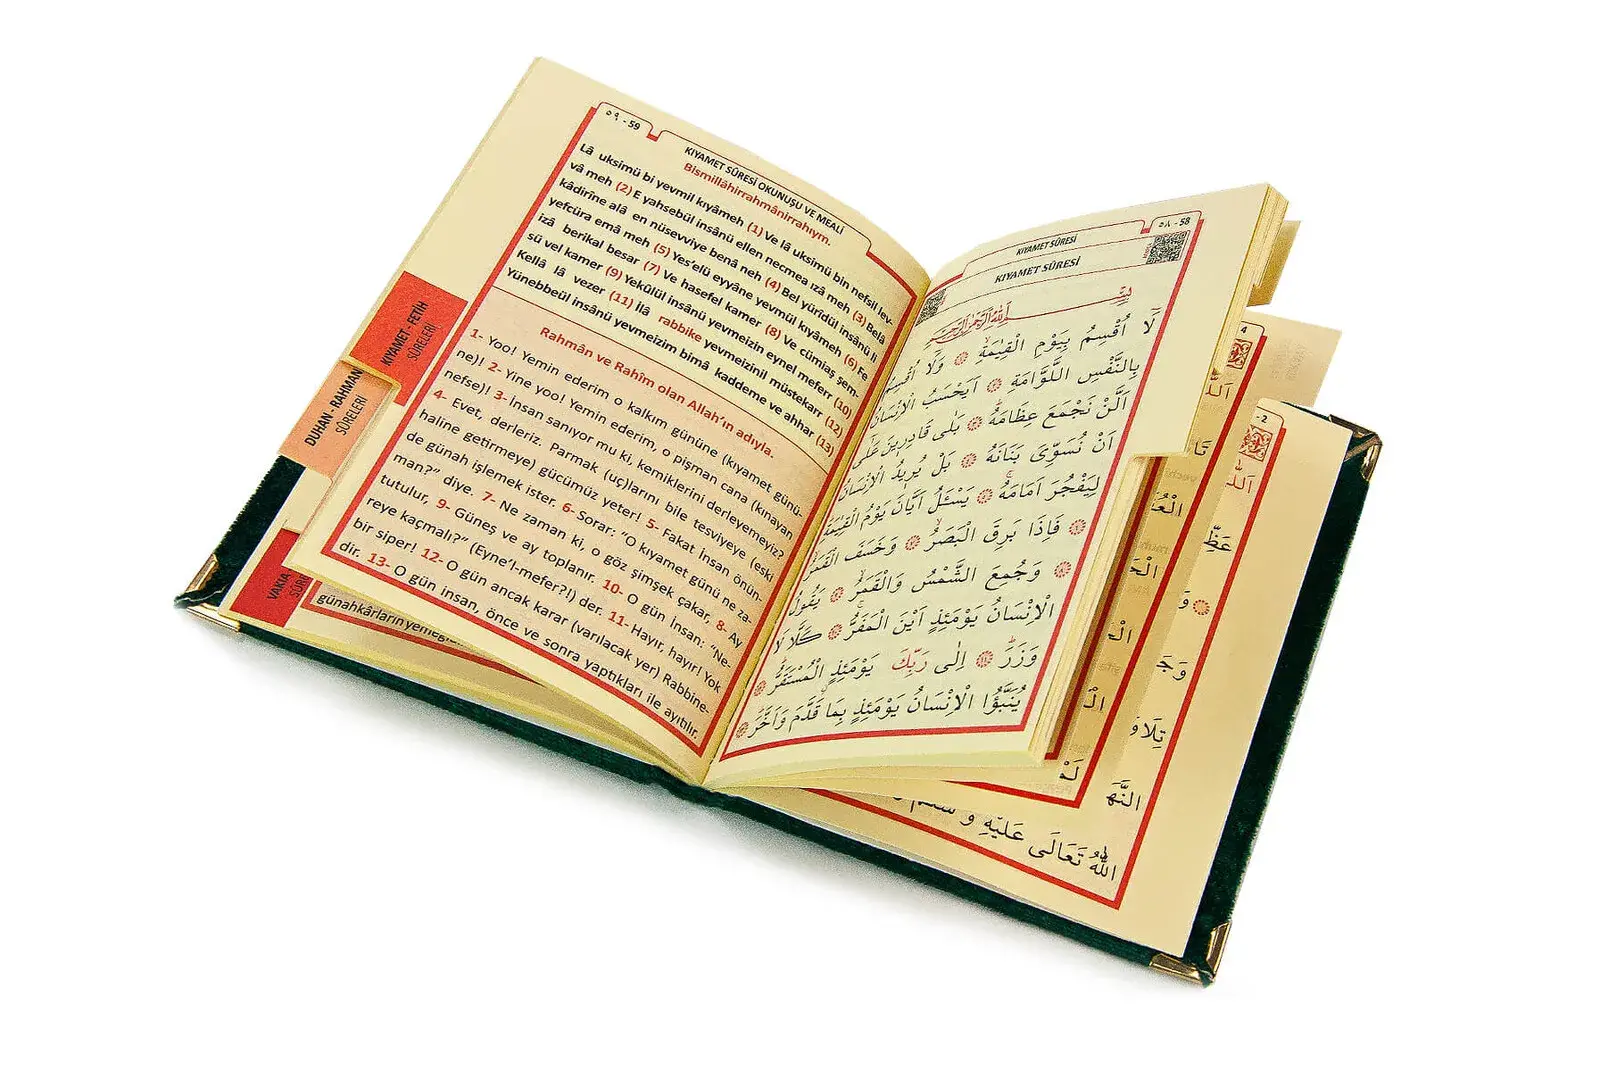 ٥٩ - 59
KIYAMET SÛRESİ OKUNUŞU VE MEALİ
Bismillâhirrahmânirrahıym.
Lâ uksimü bi yevmil kıyâmeh (1) Ve lâ uksimü bin nefsil lev-
vâ meh (2) E yahsebül insânü ellen necmea ızâ meh (3) Belâ
kâdirîne alâ en nüsevviye benâ neh (4) Bel yürîdül insânü li
yefcüra emâ meh (5) Yes'elü eyyâne yevmül kıyâmeh (6) Fe
izâ berikal besar (7) Ve hasefel kamer (8) Ve cümiaş şem-
sü vel kamer (9) Yekûlül insânü yevmeizin eynel meferr (10)
Kellâ lâ vezer (11) İlâ rabbike yevmeizinil müstekarr (12)
Yünebbeül insânü yevmeizim bimâ kaddeme ve ahhar (13)
Rahmân ve Rahîm olan Allah'ın adıyla.
1- Yoo! Yemin ederim o kalkım gününe (kıyamet günü-
ne)! 2- Yine yoo! Yemin ederim, o pişman cana (kınayan
nefse)! 3- İnsan sanıyor mu ki, kemiklerini derleyemeyiz?
4- Evet, derleriz. Parmak (uç)larını bile tesviyeye (eski
haline getirmeye) gücümüz yeter! 5- Fakat İnsan önün-
de günah işlemek ister. 6- Sorar: "O kıyamet günü ne za-
man?" diye. 7- Ne zaman ki, o göz şimşek çakar, 8- Ay
tutulur, 9- Güneş ve ay toplanır. 10- O gün İnsan: "Ne-
reye kaçmalı?" (Eyne'l-mefer?!) der. 11- Hayır, hayır! Yok
bir siper! 12- O gün ancak karar (varılacak yer) Rabbine-
dir. 13- O gün insan, önce ve sonra yaptıkları ile ayıtılır.
KIYAMET - FETİH
SÛRELERİ
DUHAN - RAHMAN
SÛRELERİ
VAKIA
günahkârların yemeği
٥٨ - 58
KIYAMET SÛRESİ
KIYAMET SÛRESİ
بِسْمِ اللّٰهِ الرَّحْمٰنِ الرَّحٖيمِ
لَٓا اُقْسِمُ بِيَوْمِ الْقِيٰمَةِۙ وَلَٓا اُقْسِمُ
بِالنَّفْسِ اللَّوَّامَةِ اَيَحْسَبُ الْاِنْسَانُ
اَلَّنْ نَجْمَعَ عِظَامَهُ بَلٰى قَادِرٖينَ عَلٰٓى
اَنْ نُسَوِّيَ بَنَانَهُ بَلْ يُرٖيدُ الْاِنْسَانُ
لِيَفْجُرَ اَمَامَهُۚ يَسْـَٔلُ اَيَّانَ يَوْمُ الْقِيٰمَةِ
فَاِذَا بَرِقَ الْبَصَرُۙ وَخَسَفَ الْقَمَرُ
وَجُمِعَ الشَّمْسُ وَالْقَمَرُۙ يَقُولُ
الْاِنْسَانُ يَوْمَئِذٍ اَيْنَ الْمَفَرُّۚ كَلَّا لَا
وَزَرَۜ اِلٰى رَبِّكَ يَوْمَئِذٍ الْمُسْتَقَرُّ
يُنَبَّؤُا الْاِنْسَانُ يَوْمَئِذٍ بِمَا قَدَّمَ وَاَخَّرَ
اللّٰهُ تَعَالَى عَلَيْهِ وَ سَلَّمَ